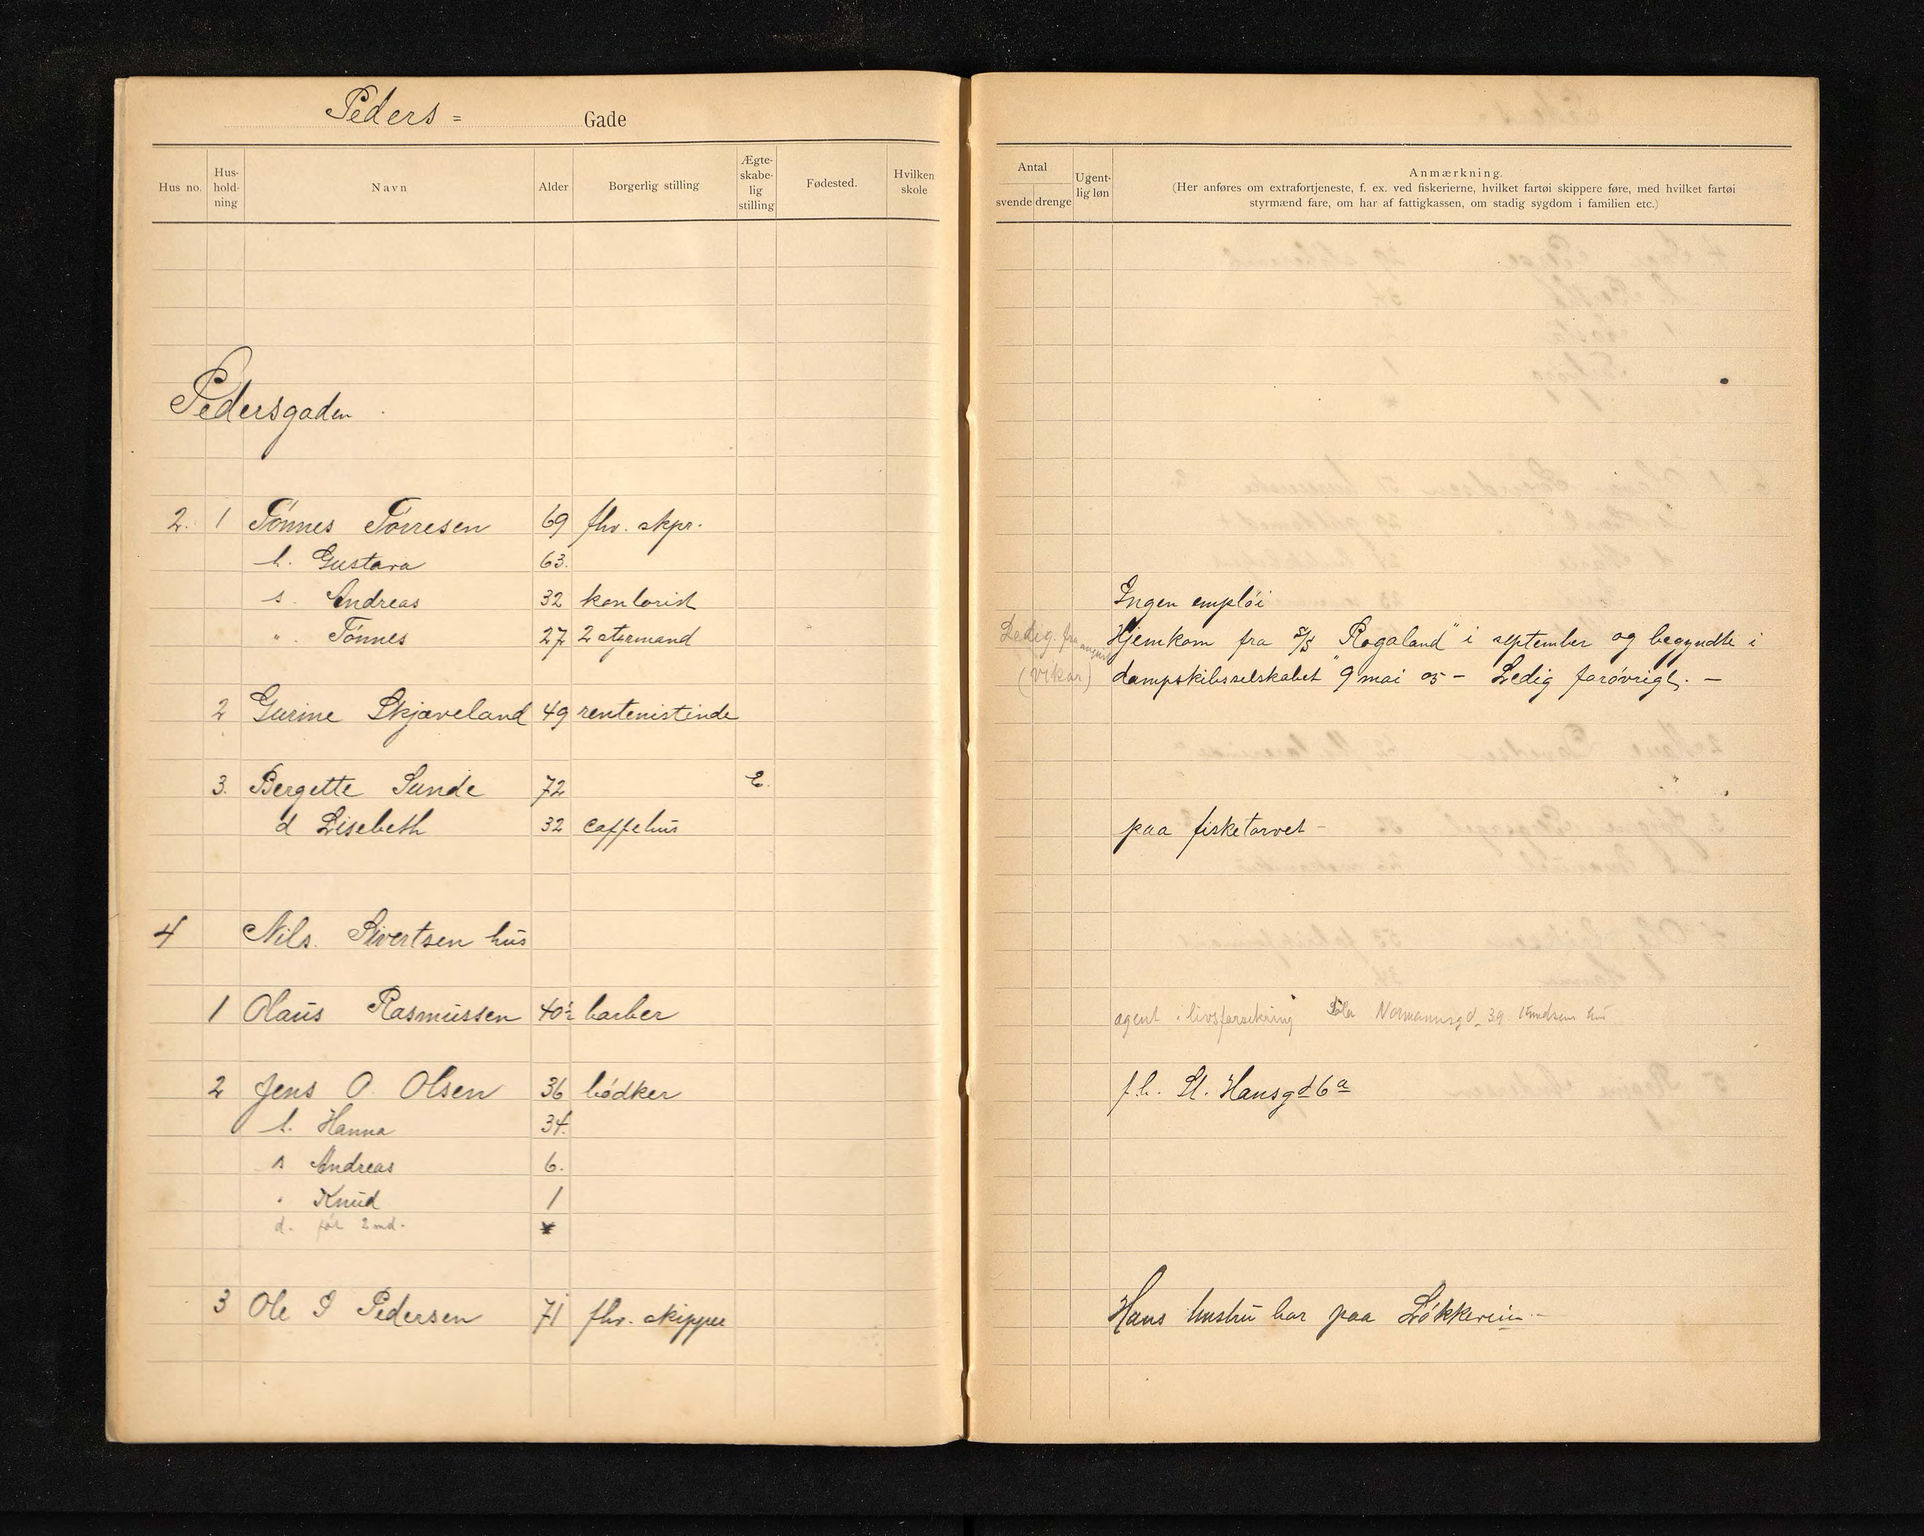 Peders = Gade
Hus no. Hus-hold-ning Navn Alder Borgerlig stilling Ægte-skabe-lig stilling Fødested. Hvilken skole
Antal svende drenge Ugent-lig løn Anmærkning.
(Her anføres om extrafortjeneste, f. ex. ved fiskerierne, hvilket fartøi skippere føre, med hvilket fartøi
styrmænd fare, om har af fattigkassen, om stadig sygdom i familien etc.)
Pedersgaden
2. 1 Tönnes Törresen 69 fhv. skpr.
h. Gustava 63.
s. Andreas 32 kontorist Ingen emplöi
". Tönnes 27 2 styrmand Ledig. fra Hjemkom fra S/S "Rogaland" i september og begyndte i
(Vikar) dampskibsselskabet 9 mai 05 – Ledig forövrigt. –
2 Gurine Skjæveland 49 rentenistinde
3. Bergette Sunde 72 E.
d Lisebeth 32 caffehus paa fisketorvet –
4 Nils Sivertsen hus
1 Olaus Rasmussen 40½ barber agent i livsforsekring Normannsgd. 39 Knudsens hus
2 Jens O Olsen 36 bödker f.h. St. Hansgd 6a
h. Hanna 34.
s Andreas 6.
" Knud 1
d. för 2 md.
3 Ole S Pedersen 71 fhv. skipper Hans hustru bor paa Lökkevein –